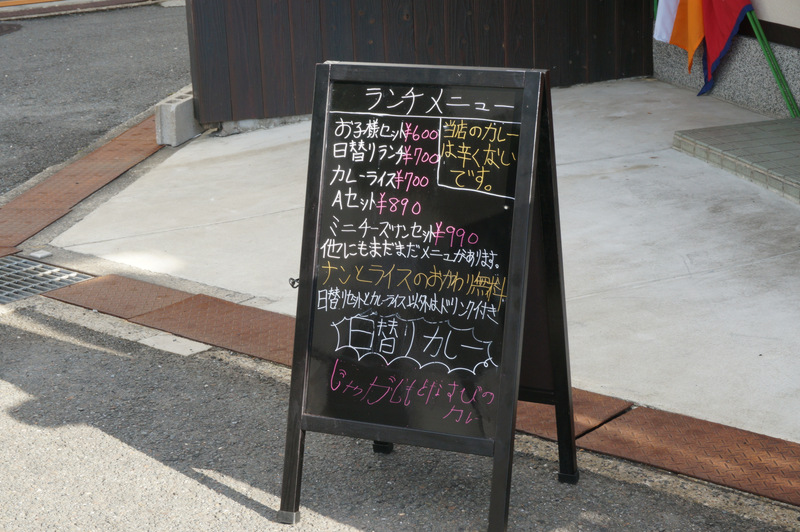 ランチメニュー
お子様セット¥600
日替りランチ¥700
カレーライス¥700
Aセット¥890
ミニチーズナンセット¥990
当店のカレー
は辛くない
です。
他にもまだまだメニューがあります。
ナンとライスのおかわり無料
日替りセットとカレーライス以外はドリンク付き
日替りカレー
じゃがいもとなすびの
カレー